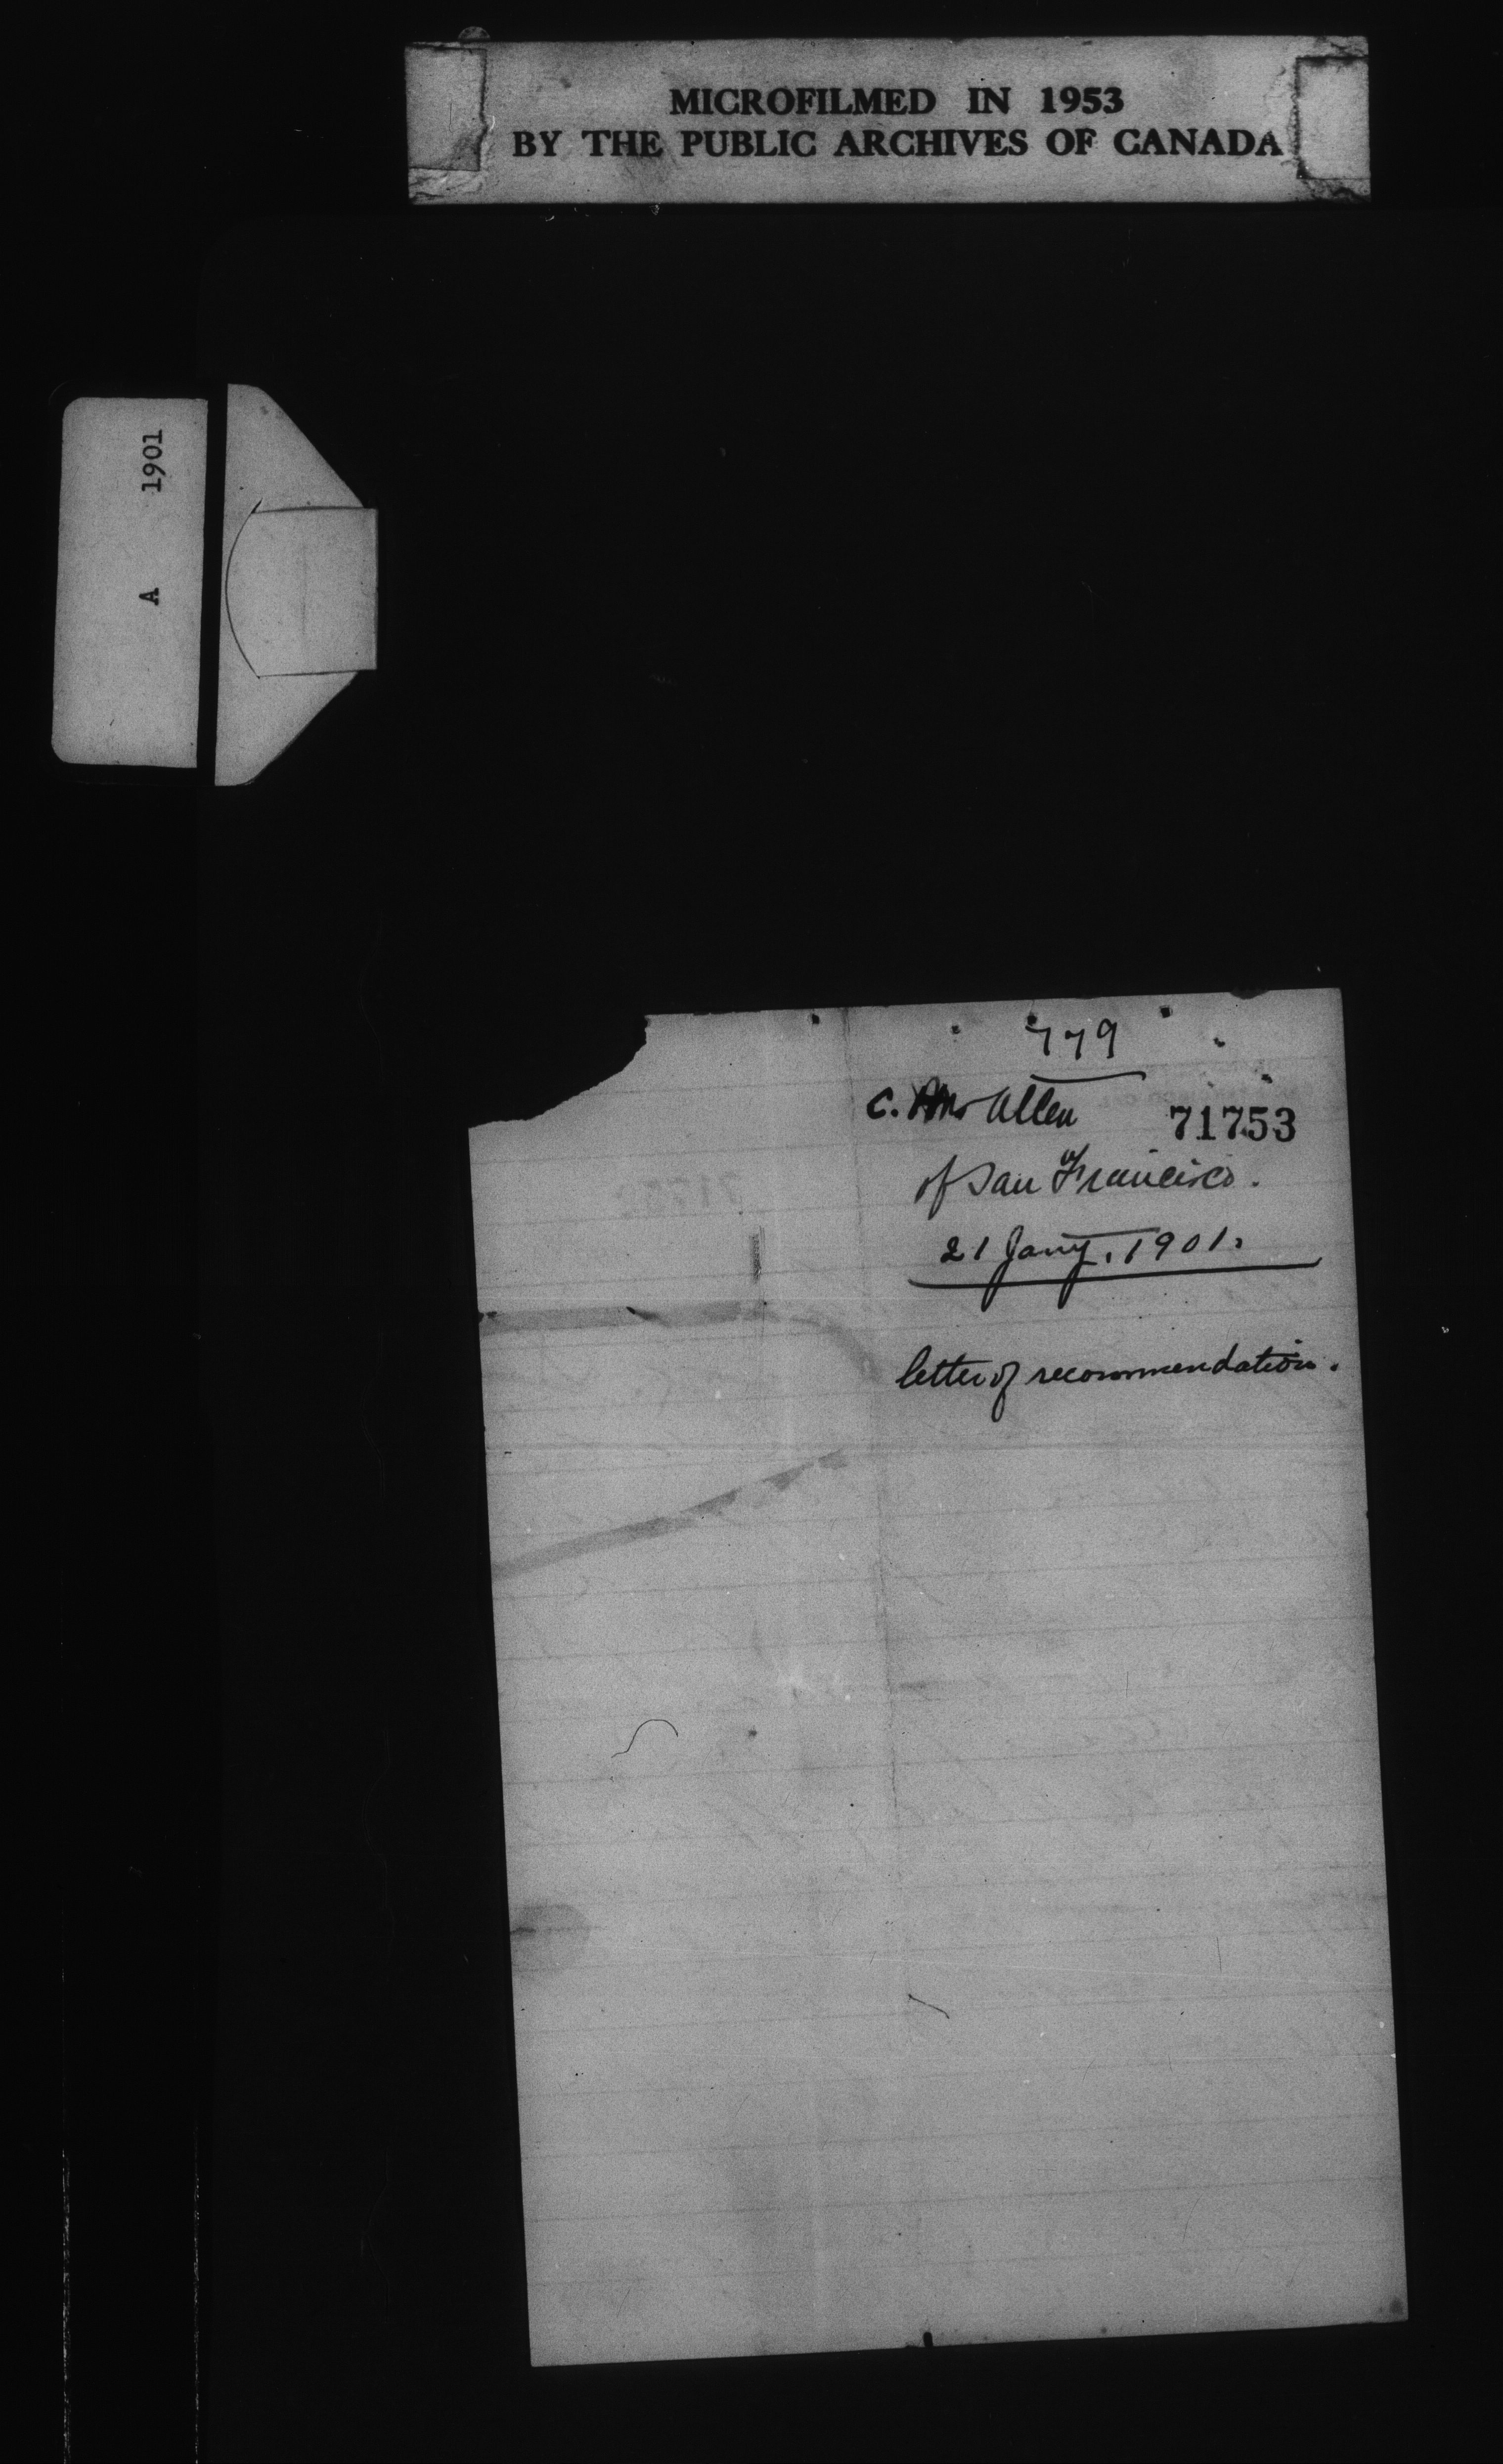 MICROFILMED IN 1953
BY THE PUBLIC ARCHIVES OF CANADA
A 1901
779
C. Allen
71753
of San Francisco.
21 Jany. 1901.
letter of recommendation.